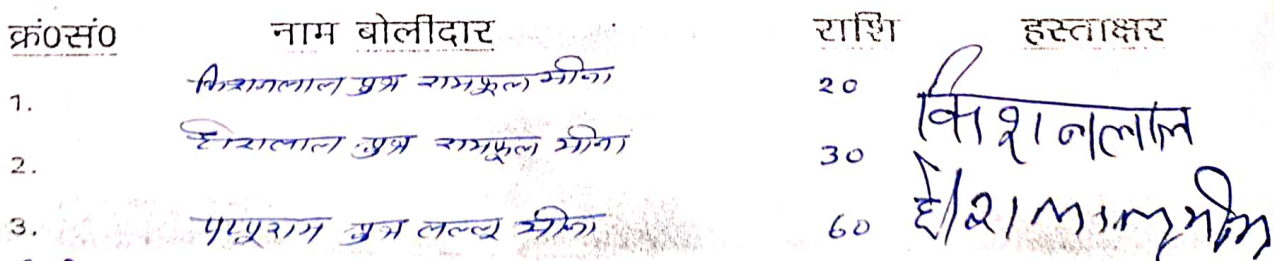 क्रं०सं० नाम बोलीदार राशि हस्ताक्षर
1. किशनलाल पुत्र रामफूल मीना 20 किशनलाल
2. हीरालाल पुत्र रामफूल मीना 30
3. पप्पूराम पुत्र लल्लू मीना 60